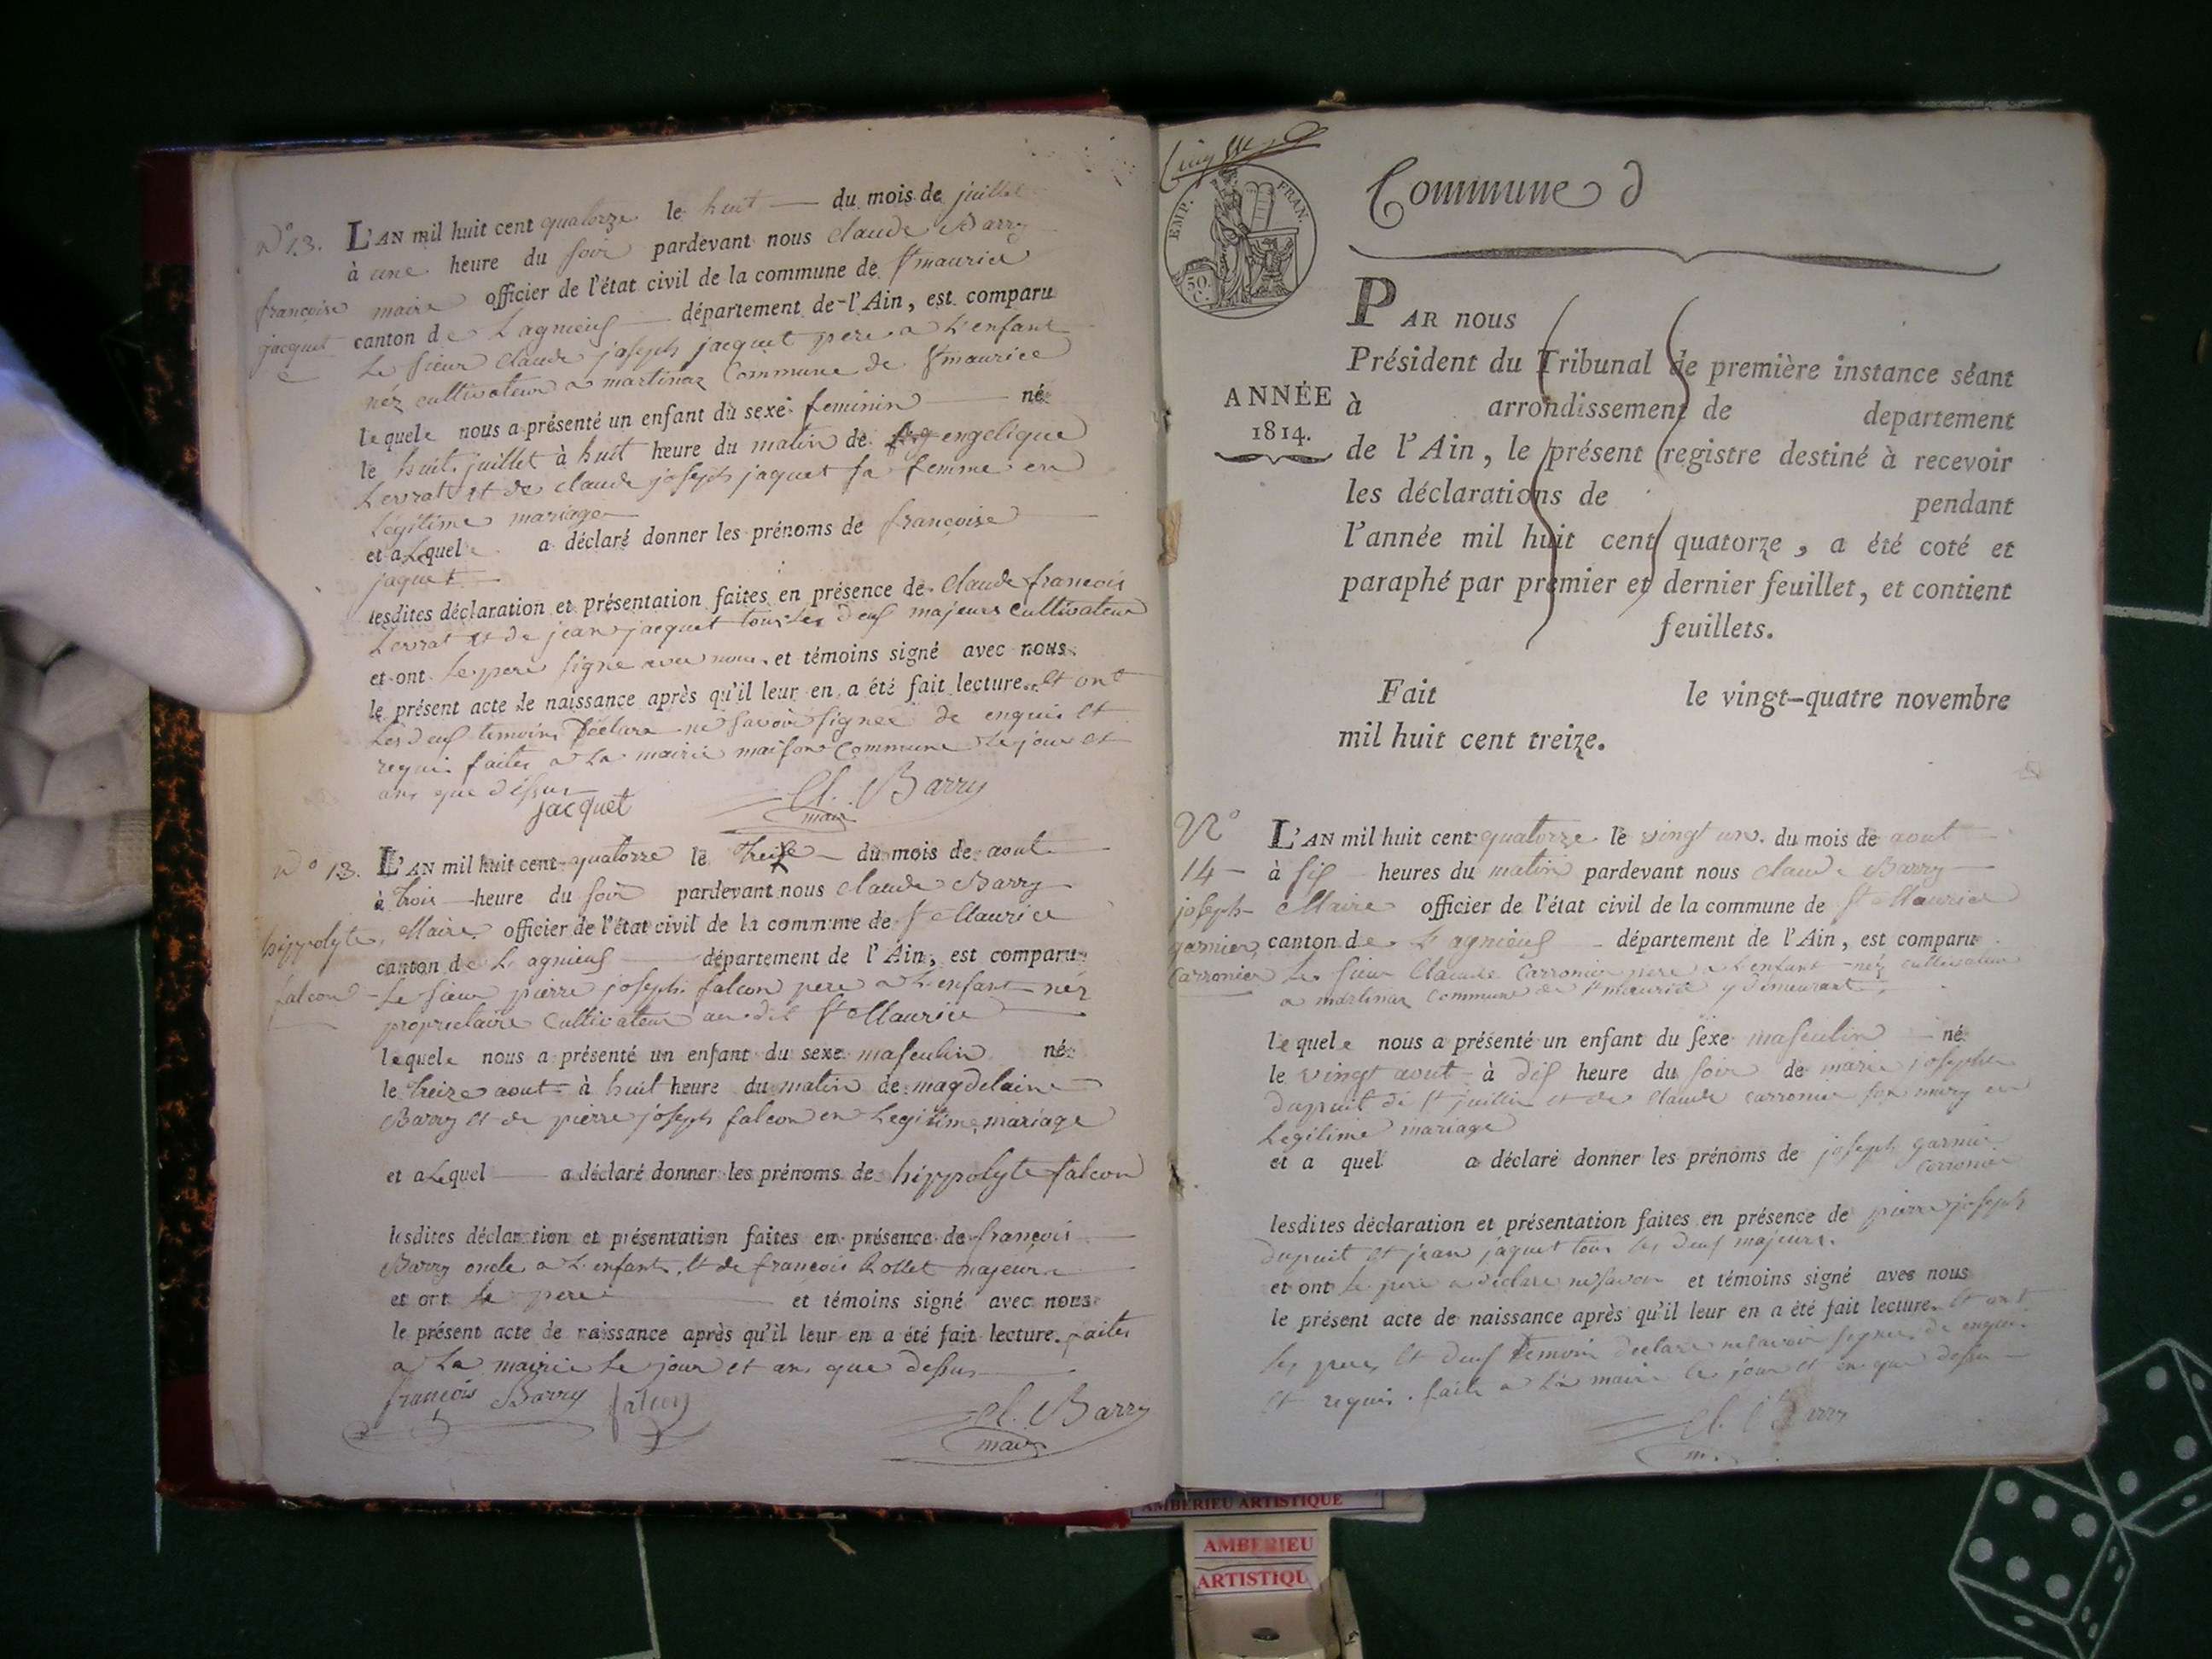 N° 13. L'AN mil huit cent quatorze le huit du mois de juillet
à une heure du soir pardevant nous claude Barry
maire officier de l'état civil de la commune de St maurice
françoise
jacquet
canton de Lagnieuf département de l'Ain, est comparu
Le sieur claude joseph jacquet pere a L'enfant
néz cultivateur a martinaz Commune de St maurice
lequele nous a présenté un enfant du sexe feminin né
le huit juillet à huit heure du matin de engelique
Levrat et de claude joseph jaquet sa femme en
Legitime mariage
et a Lequel a déclaré donner les prénoms de françoise
jaquet
lesdites déclaration et présentation faites en présence de Claude francois
Levrat et de jean jacquet tous les deuf majeurs cultivateur
et ont Le pere signe avec nous et témoins signé avec nous
le présent acte de naissance après qu'il leur en a été fait lecture. et ont
Les deuf temoins declare ne savoir signer de enquis et
requi. faites a La mairie maison Commune Le jour et
ans que dessus
jacquet
Cl. Barry
maire
N° 13. L'AN mil huit cent quatorze le treize du mois de aout
à trois heure du soir pardevant nous claude Barry
Maire officier de l'état civil de la commune de St Maurice
hippolyte
falcon
canton de Lagnieuf département de l'Ain, est comparu
Le sieur pierre joseph falcon pere a L'enfant néz
proprietaire Cultivateur au dit St Maurice
lequele nous a présenté un enfant du sexe masculin né
le treize aout à huit heure du matin de magdelaine
Barry et de pierre joseph falcon en Legitime mariage
et a Lequel a déclaré donner les prénoms de hippolyte falcon
lesdites déclaration et présentation faites en présence de françois
Barry oncle a L'enfant et de françois majeur
et ont Le pere et témoins signé avec nous
le présent acte de naissance après qu'il leur en a été fait lecture. faites
a La mairie Le jour et ans que dessus
françois Barry falcon
Cl. Barry
maire
EMP. FRAN.
50. C.
Commune d
ANNÉE
1814.
PAR nous
Président du Tribunal de première instance séant
à arrondissement de departement
de l'Ain, le présent registre destiné à recevoir
les déclarations de pendant
l'année mil huit cent quatorze, a été coté et
paraphé par premier et dernier feuillet, et contient
feuillets.
Fait le vingt-quatre novembre
mil huit cent treize.
N°
14
joseph
garnier
Carronier
L'AN mil huit cent quatorze le vingt un du mois de aout
à sif heures du matin pardevant nous claude Barry
Maire officier de l'état civil de la commune de St Maurice
canton de Lagnieuf département de l'Ain, est comparu
Le sieur Claude Carronier pere a L'enfant néz cultivateur
a martinaz Commune de St maurice y demeurant
lequele nous a présenté un enfant du sexe masculin né
le vingt aout à dif heure du soir de marie josephe
dupuit de St juillin et de Claude carronier son mary en
Legitime mariage
et a quel a déclaré donner les prénoms de joseph garnier
Carronier
lesdites déclaration et présentation faites en présence de pierre joseph
dupuit et jean jaquet tous les deuf majeurs.
et ont Le pere a declare ne savoir et témoins signé avec nous
le présent acte de naissance après qu'il leur en a été fait lecture. et ont
les peres et deuf temoin declare ne savoir signer de enquis
et requis. faite a La mairie le jour et an que dessu
Cl. Barry
m.
AMBERIEU ARTISTIQUE
AMBERIEU
ARTISTIQU